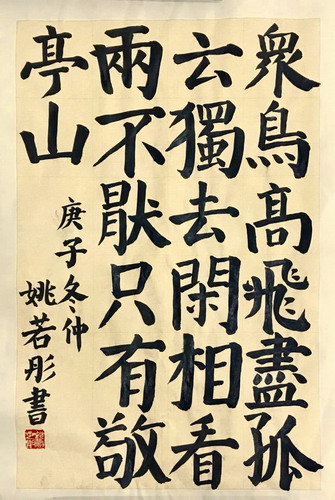 眾鳥髙飛盡孤
云獨去閑相看
兩不猒只有敬
亭山
庚子冬仲
姚若彤書